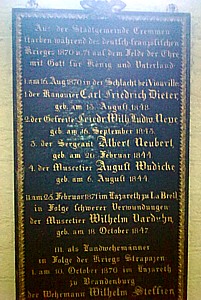 Aus der Stadtgemeinde Cremmen
starben während des deutsch-französischen
Krieges 1870 u. 71 auf dem Felde der Ehre
mit Gott für König und Vaterland:
I. am 16. Aug. 1870 in der Schlacht bei Vionville
1. der Kanonier Carl Friedrich Dieter,
geb. am 15. August 1848.
2. der Gefreite Friedr. Wilh. Ludw. Neue
geb. am 26. September 1843.
3. der Sergeant Albert Neubert,
geb. am 26. Februar 1844
4. der Musketier August Wudicke
geb. am 6. August 1844
II. am 25. Februar 1871 im Lazareth zu La
in Folge schwerer Verwundungen
der Musketier Wilhelm Varduhn,
geb. am 18. October 1847.
III. als Landwehrmänner
in Folge des Kriegs Strapazen
1. am 10. October 1870 im Lazareth
zu Brandenburg
der Wehrmann Wilhelm Steffien